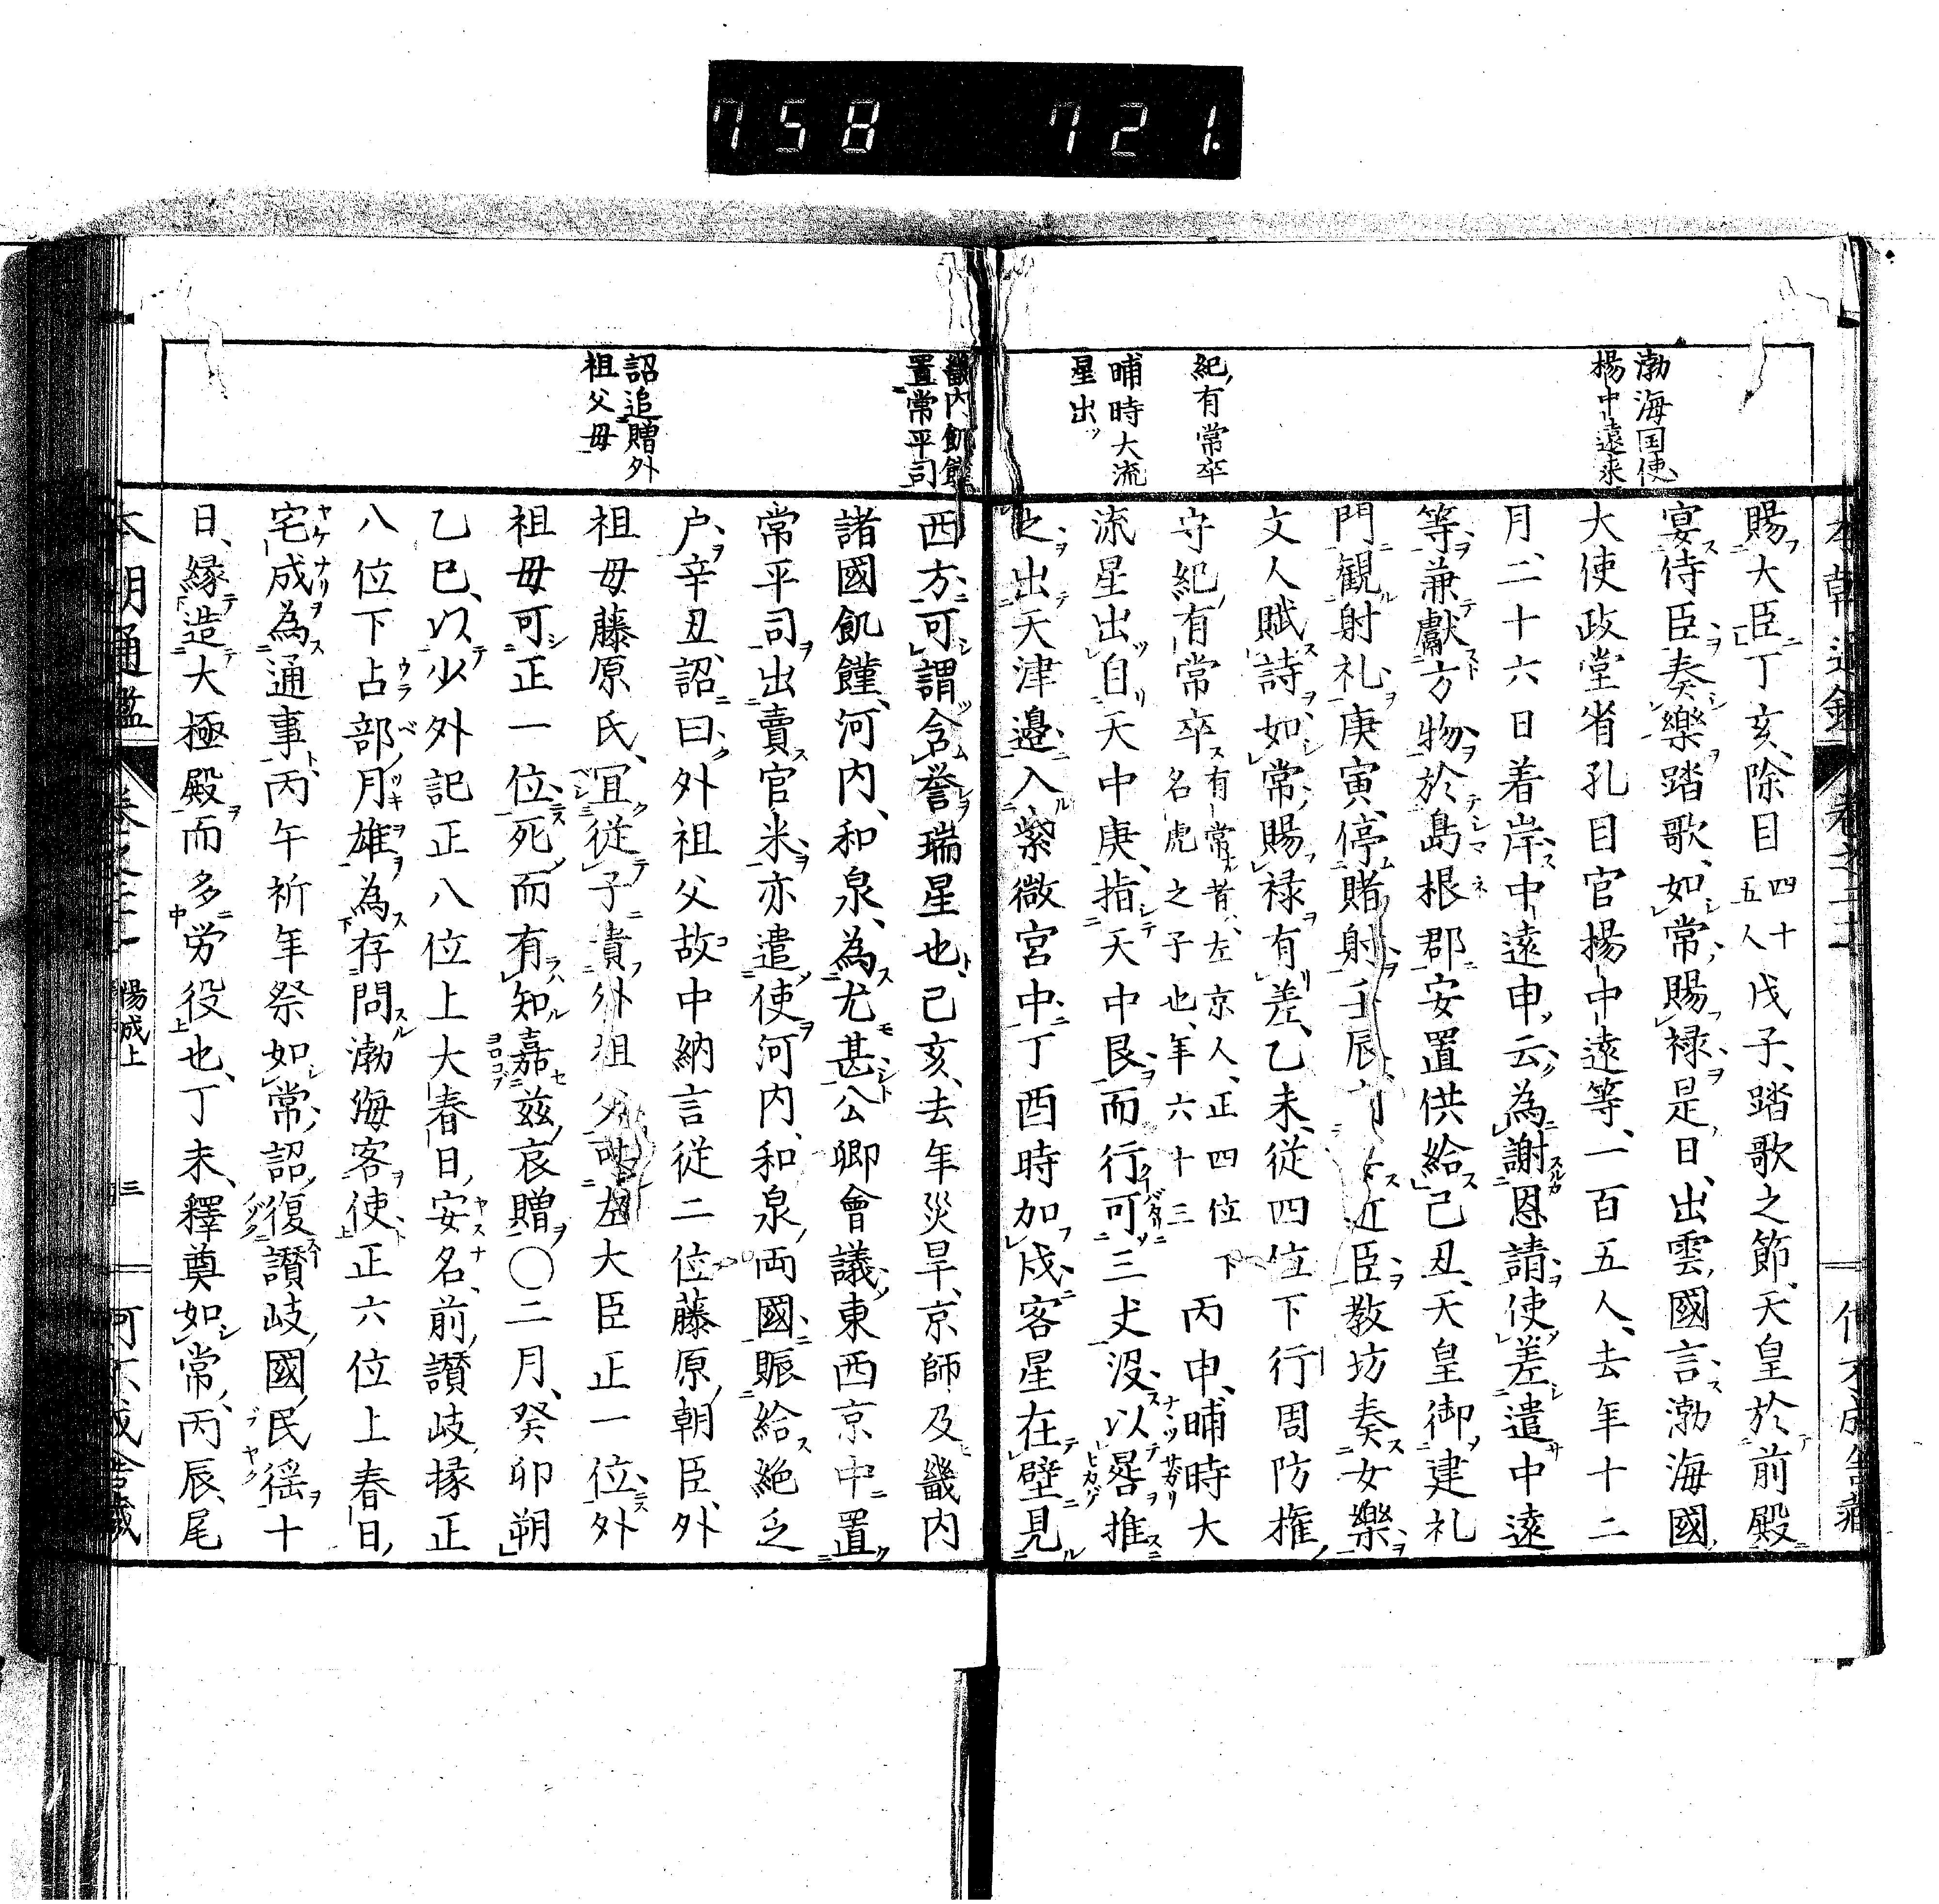 758 721.
渤海国使
楊中遠来
紀有常卒
晡時大流
星出ツ
賜大臣丁亥、除目四十五人戊子、踏歌之節、天皇於前殿
宴侍臣奏樂踏歌、如常賜禄是日、出雲國言渤海國
大使政堂省孔目官楊中遠等、一百五人、去年十二
月二十六日着岸中遠申云為謝恩請使差遣中遠
等兼獻方物於島根郡安置供給己丑、天皇御建礼
門観射礼庚寅、停賭射壬辰、近臣教坊奏女樂
文人賦詩如常賜禄有差、乙未、従四位下行周防権
守紀有常卒有常者、左京人、正四位下名虎之子也、年六十三丙申、晡時大
流星出自天中庚、指天中艮而行可三丈没以晷推
之出天津邉入紫微宮中丁酉時加戌客星在壁見
畿内飢饉
置常平司
詔追贈外
祖父母
西方可謂含誉瑞星也己亥、去年災旱、京師及畿内
諸國飢饉、河内、和泉、為尤甚公卿會議東西京中置
常平司出賣官米亦遣使河内、和泉両國賑給絶乏
户辛丑、詔曰外祖父故中納言従二位藤原朝臣、外
祖母藤原氏、冝従子貴外祖父可左大臣正一位外
祖母可正一位死而有知嘉兹哀贈〇二月、癸卯朔
乙巳、以少外記正八位上大春日安名、前讃岐掾正
八位下占部月雄為存問渤海客使正六位上春日
宅成為通事丙午祈年祭如常詔復讃岐國民徭十
日、縁造大極殿而多労役也、丁未、釋奠如常、丙辰、尾
本朝通鑑 陽成上 三